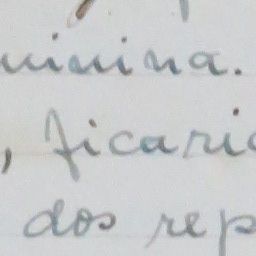 uinina.
, ficaria
dos rep